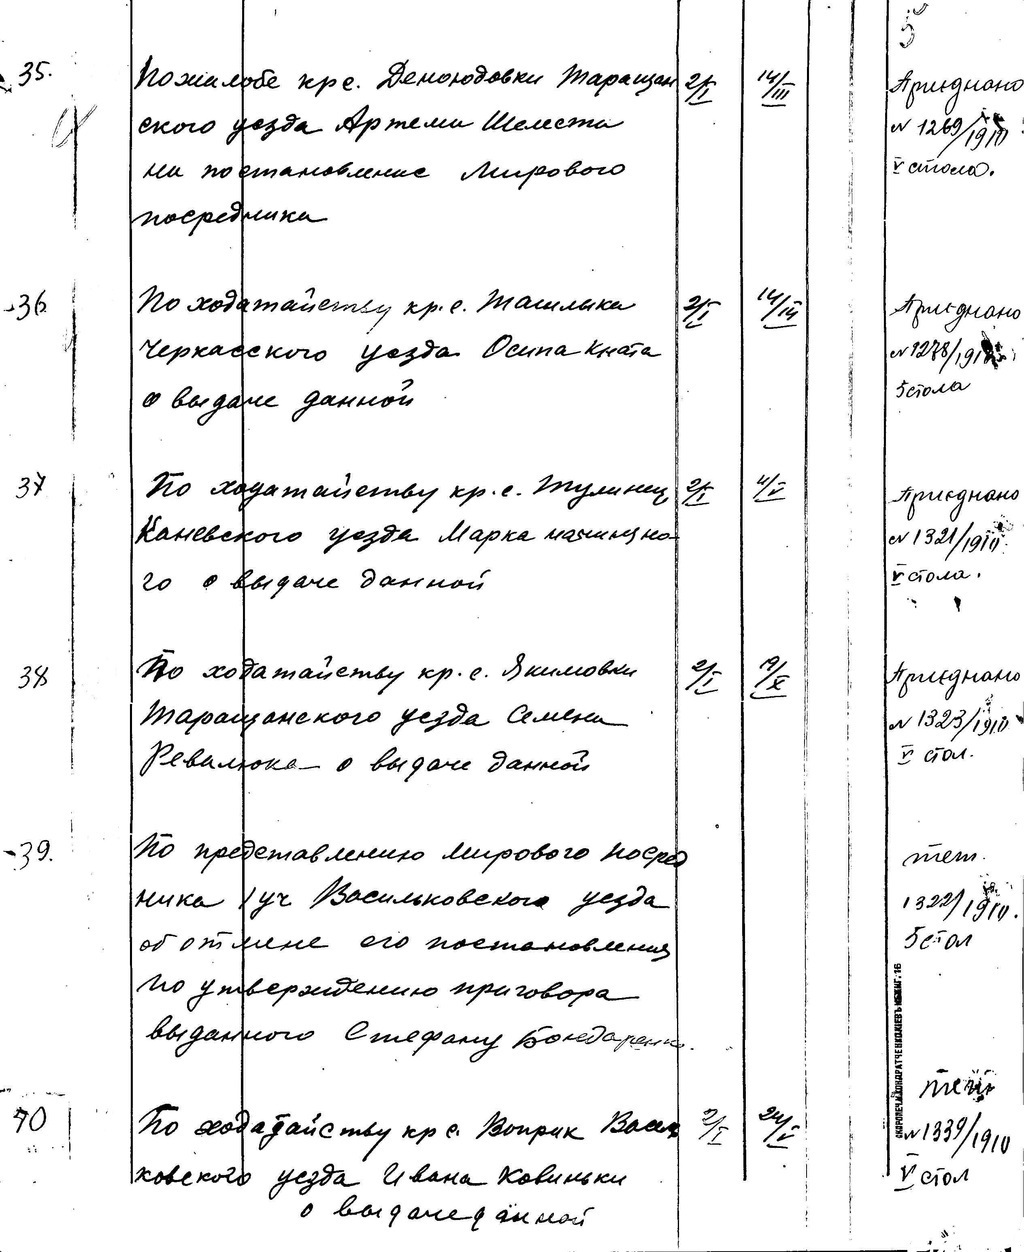 5
35. По жалобе кр с. Демоюдовки Таращан 2/I 14/III Приєднано
ского уезда Артема Шелеста N 1269/1910
на постановление Мирового V стола.
посредника
36 По ходатайству кр. с. Ташлыка 2/I 14/III Приєднано
Черкасского уезда Осипа Кната N 1278/1910
о выдаче данной 5 стола
37 По ходатайству кр. с. Тулинец 2/I 4/V Приєднано
Каневского уезда Марка начинно N 1321/1910
го о выдаче данной V стола.
38 По ходатайству кр. с. Якимовки 2/I 19/X Приєднано
Таращанского уезда Семена N 1323/1910
Ревалюка о выдаче данной V стол.
39. По представлению Мирового Посред теж.
ника 1 уч Васильковского уезда 1322/1910.
об отмене его постановления 5 стол
по утверждению приговора
выданного Стефану Бондаренко.
теж
40 По ходатайству кр с. Воприк Василь 2/I 24/V N 1339/1910
ковского уезда Ивана Ковиньки V стол
о выдаче данной